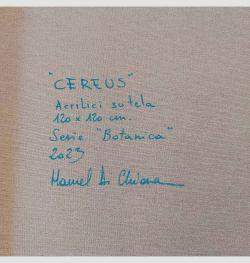 "CEREUS"
Acrilici su tela
120 x 120 cm.
Serie "Botanica"
2023
Manuel Di Chiara